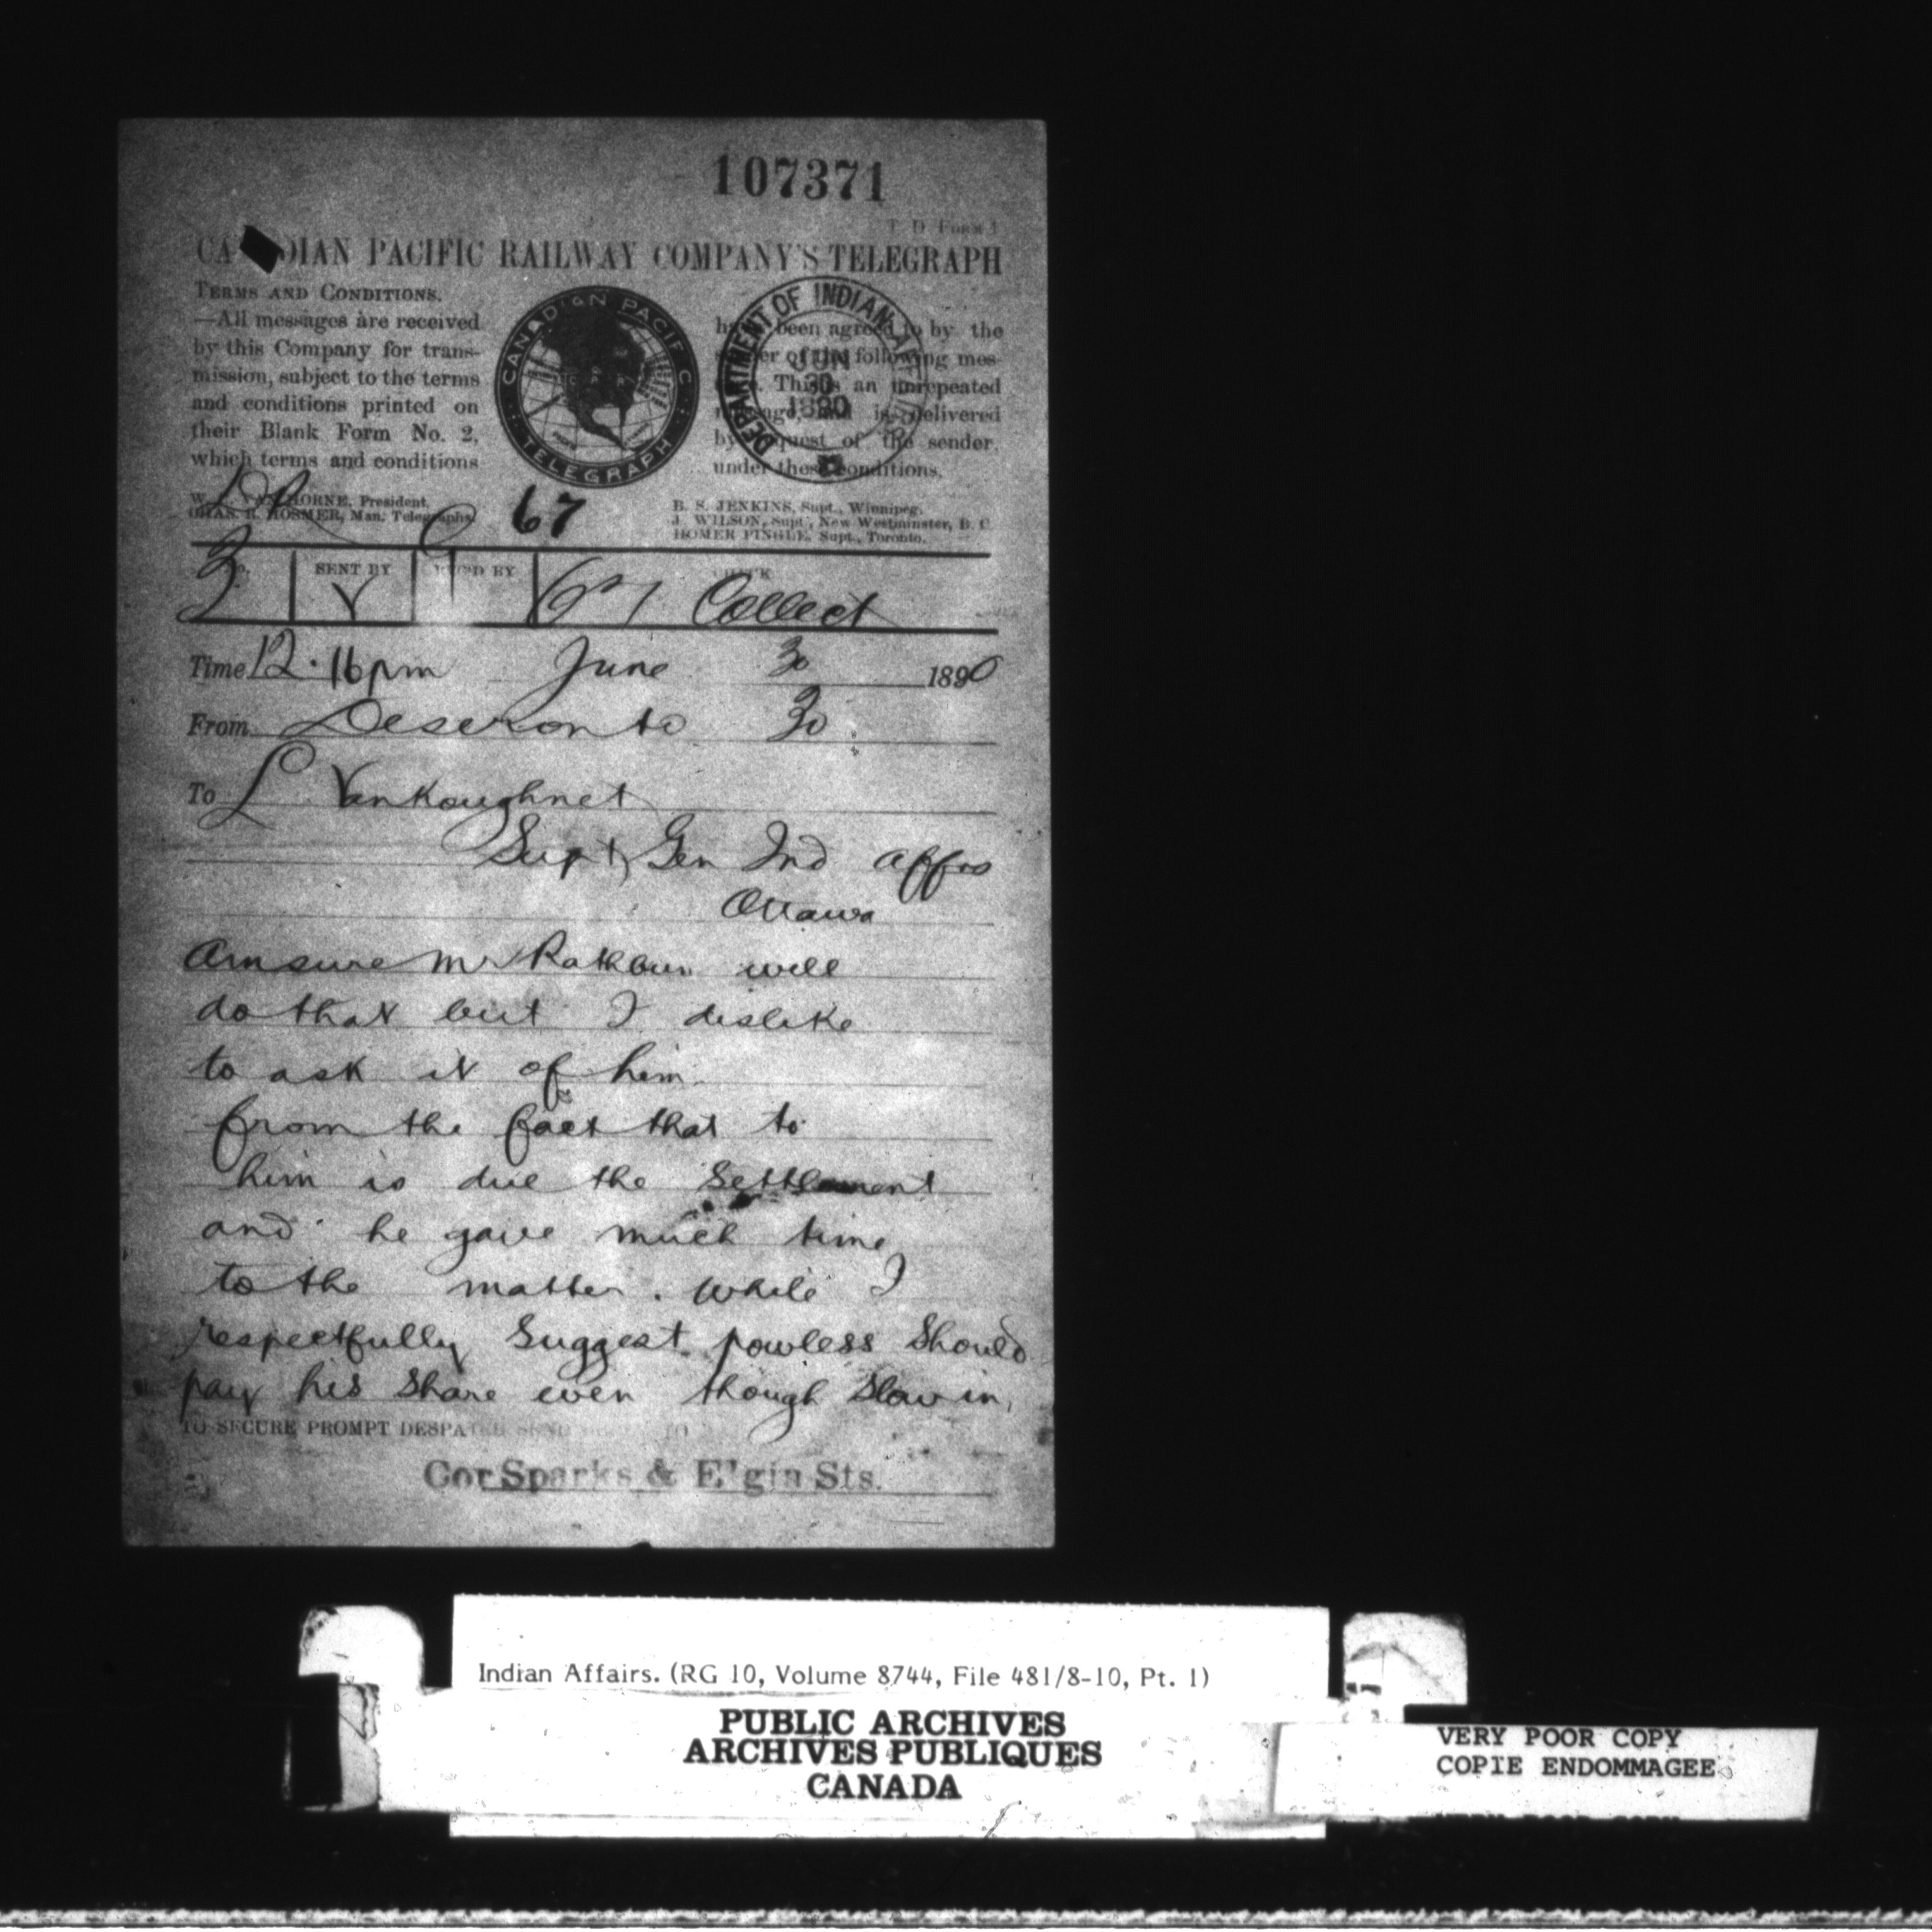 107371
T. D. Form 1
CANADIAN PACIFIC RAILWAY COMPANY'S TELEGRAPH
TERMS AND CONDITIONS.
—All messages are received
by this Company for trans-
mission, subject to the terms
and conditions printed on
their Blank Form No. 2,
which terms and conditions
CANADIAN PACIFIC
TELEGRAPH
have been agreed to by the
sender of the following mes-
sage. This is an unrepeated
message, and is delivered
by request of the sender,
under these conditions.
DEPARTMENT OF INDIAN AFFAIRS
JUN
30
1890
W. C. VAN HORNE, President.
CHAS. R. HOSMER, Man. Telegraphs.
67
B. S. JENKINS, Supt., Winnipeg.
J. WILSON, Supt., New Westminster, B. C.
HOMER PINGLE, Supt., Toronto.
No.
SENT BY
REC'D BY
CHECK
67 Collect
Time 12.16pm June 30 1890
From Deseronto 30
To L VanKoughnet
Supt Gen Ind affrs
Ottawa
Am sure Mr Rathbun will
do that but I dislike
to ask it of him
from the fact that to
him is due the Settlement
and he gave much time
to the matter. While I
respectfully Suggest powless Should
pay his Share even though Slow in,
TO SECURE PROMPT DESPATCH SEND TO
Cor Sparks & Elgin Sts.
Indian Affairs. (RG 10, Volume 8744, File 481/8-10, Pt. 1)
PUBLIC ARCHIVES
ARCHIVES PUBLIQUES
CANADA
VERY POOR COPY
COPIE ENDOMMAGEE